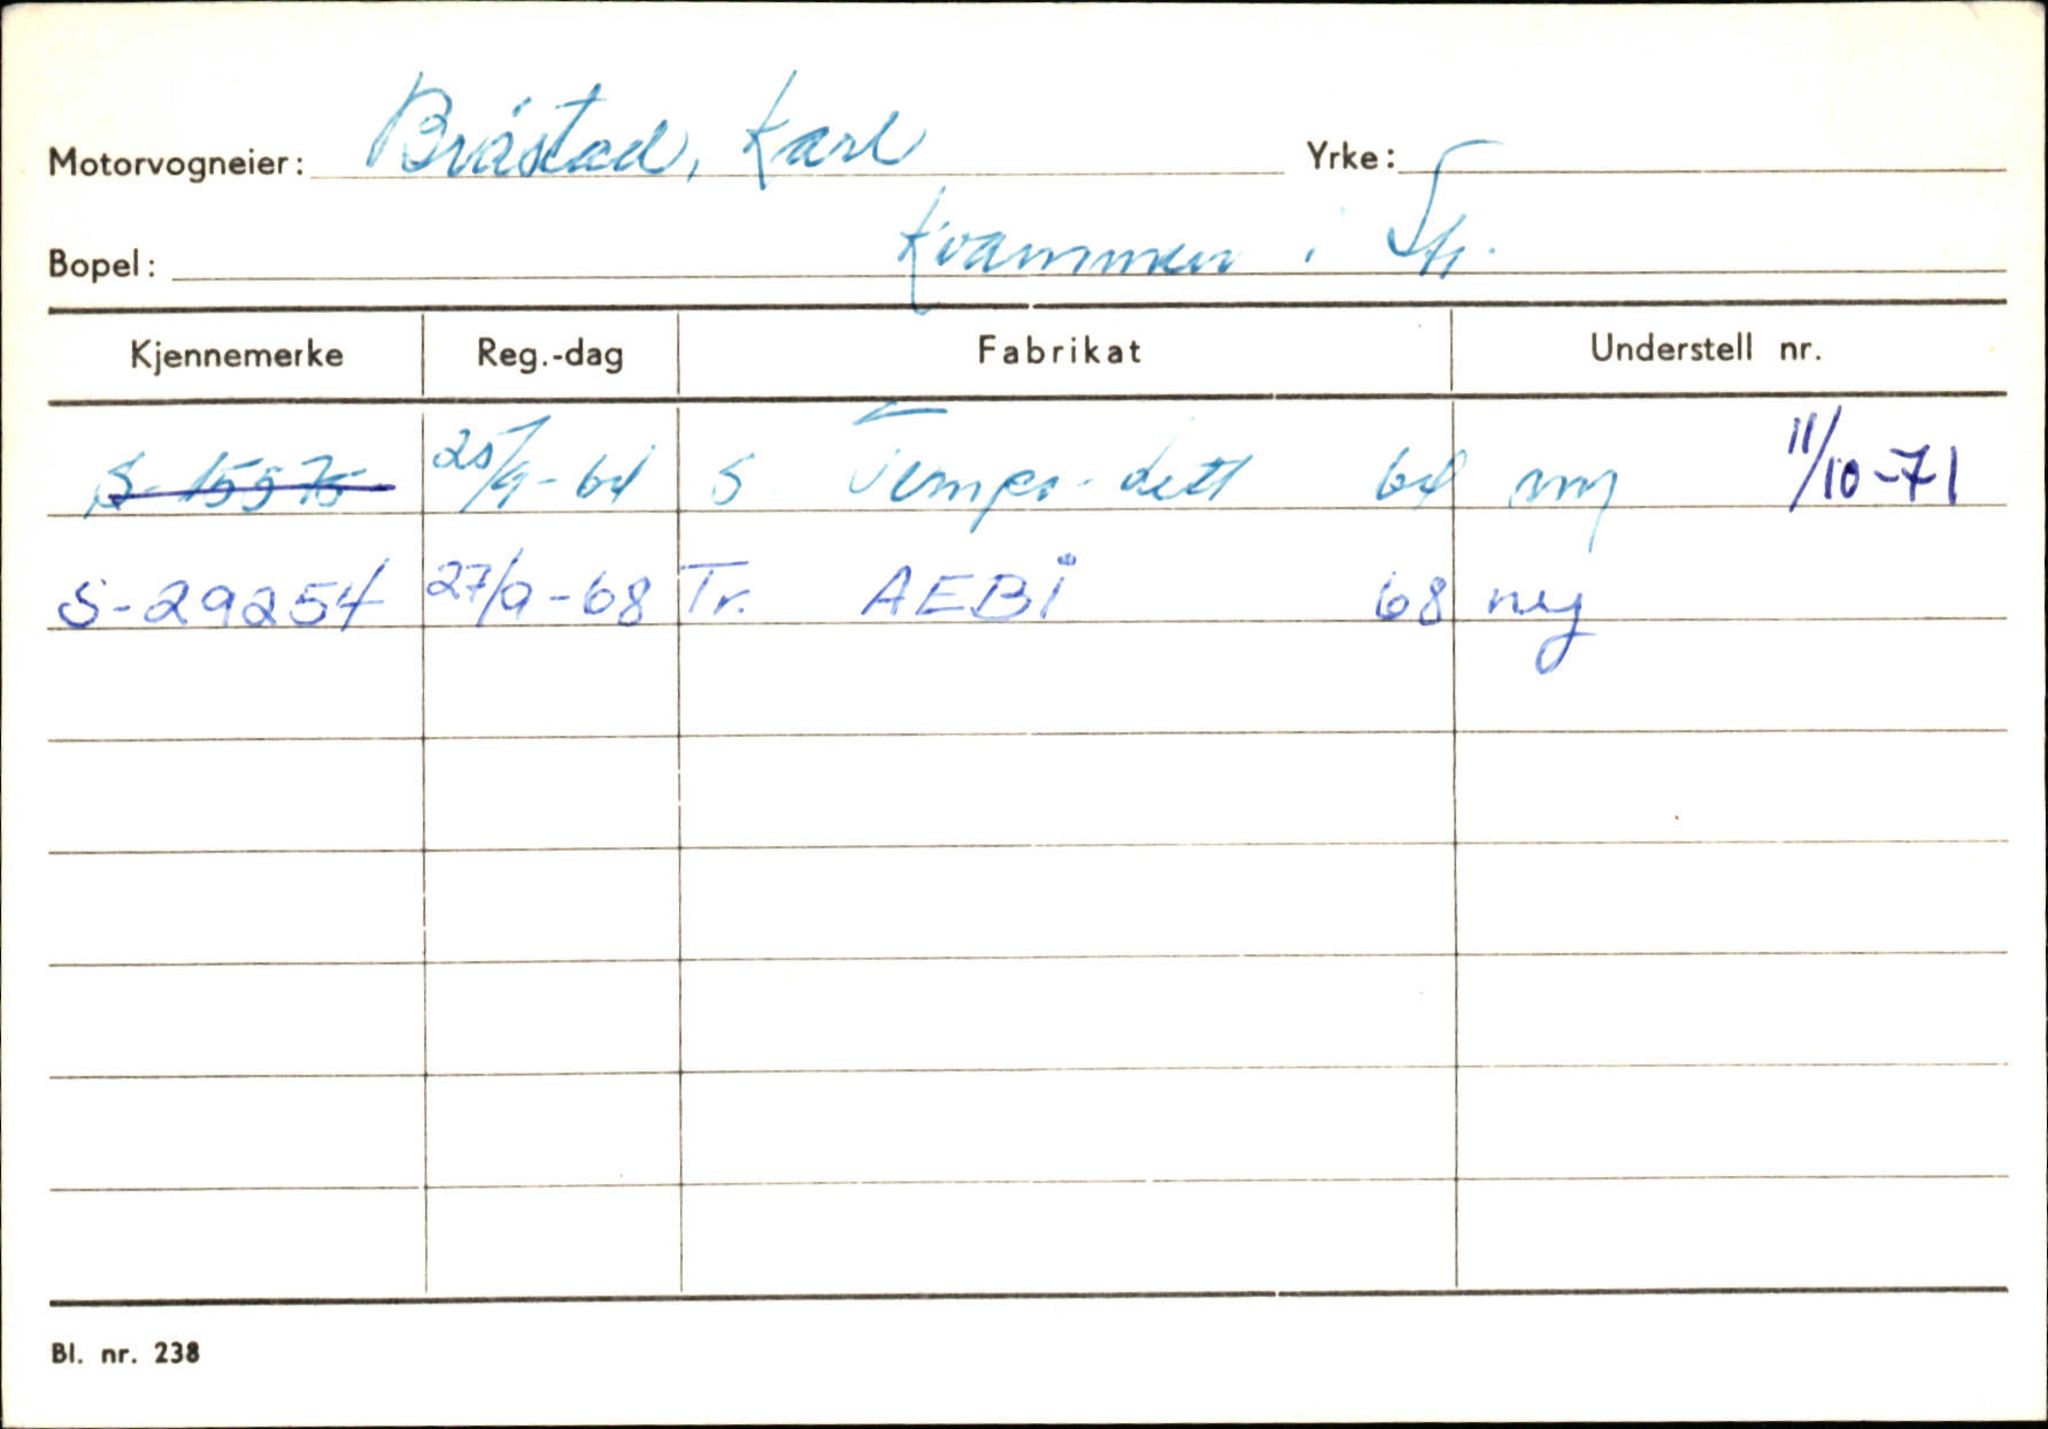 Motorvogneier: Bråstad, Karl Yrke:
Bopel: Kvammen i Sfj.
Kjennemerke Reg.-dag Fabrikat Understell nr.
S-15575 25/9-64 S. Tempo-lett 64 ny 11/10-71
S-29254 27/9-68 Tr. AEBI 68 ny
Bl. nr. 238